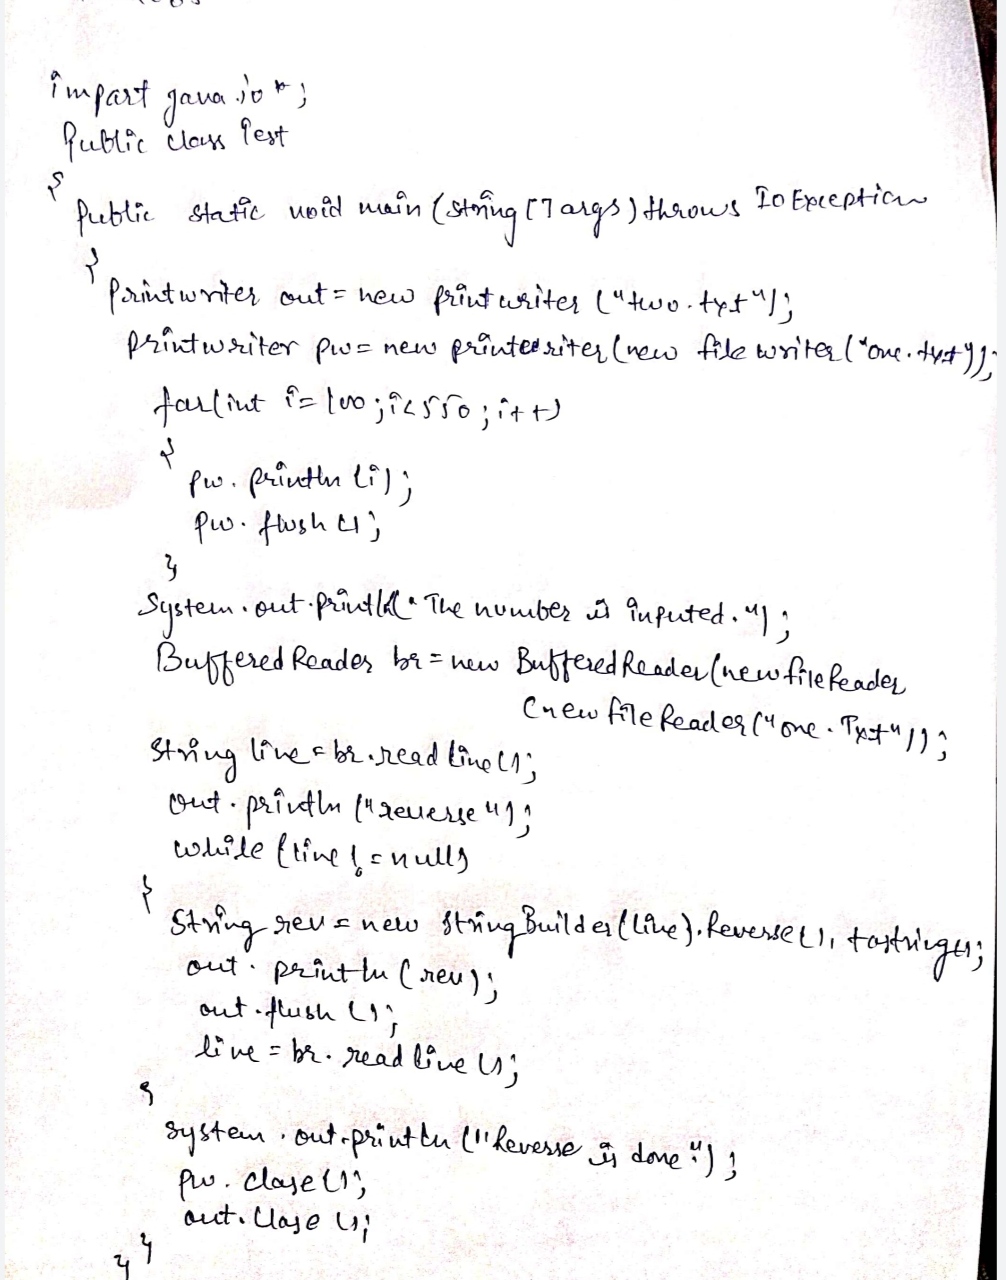 import java.io*;
Public class Test
{
Public static void main (string [] args) throws IoException
{
Printwriter out = new printwriter ("two.txt");
printwriter pw = new printwriter (new file writer ("one.txt"));
for(int i=100;i<550;i++)
{
pw. println (i);
pw. flush ();
}
System.out.println("The number is inputed.");
Buffered Reader br = new Buffered Reader (new file Reader
(new file Reader ("one.Txt"));
String line = br.read line ();
out.println ("reverse");
while (line != null)
{
String rev = new String Builder (line). Reverse (), tostring();
out. println (rev);
out.flush ();
line = br. read line ();
}
system.out.println ("Reverse is done");
pw. close ();
out. Close ();
}
}